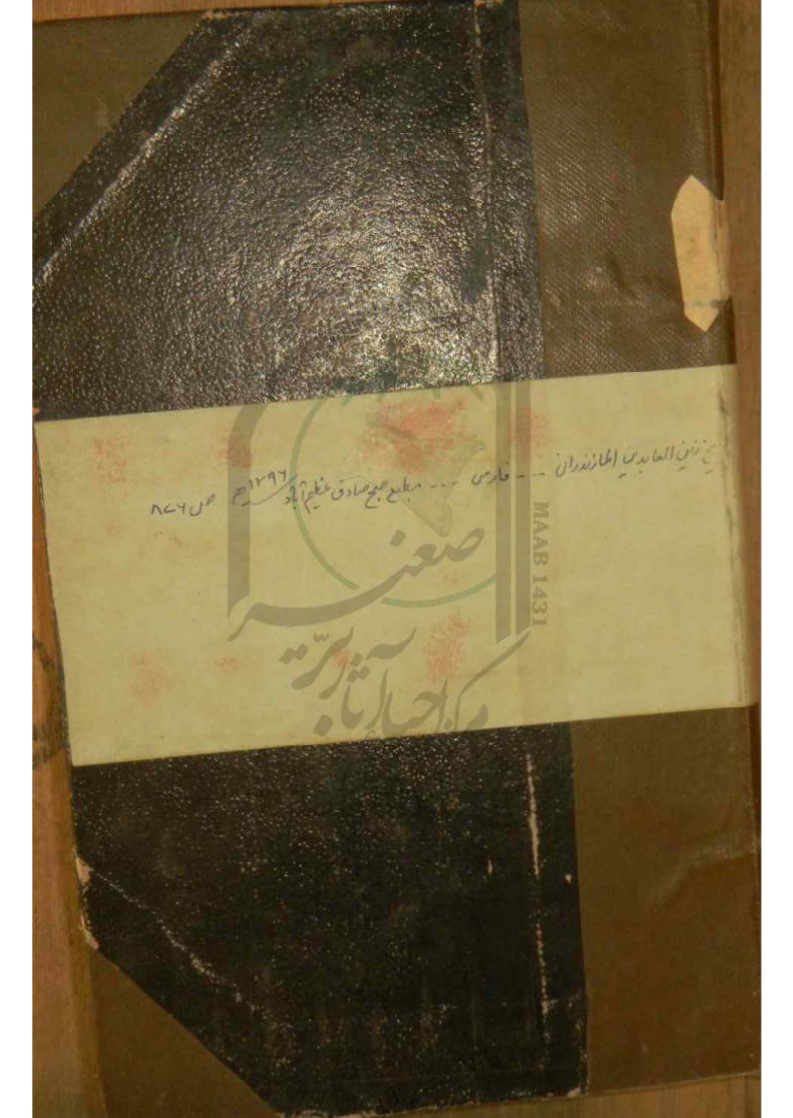 زین العابدین المازندرانی --- فارسی --- مطبع صبح صادق عظیم آباد ۱۲۹۶ھ ص ۸۷۶
MAAB 1431
مرکز احیاء آثار برصغیر